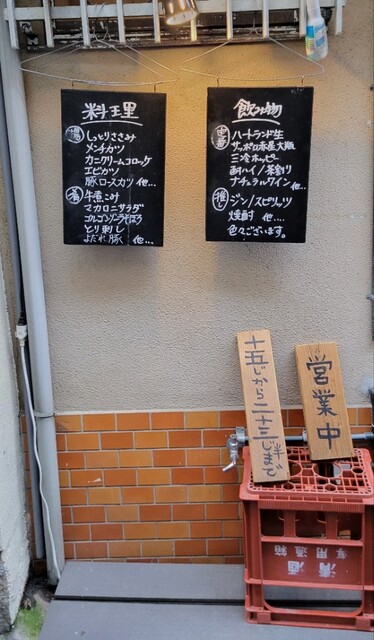 料理
揚
しっとりささみ
メンチカツ
カニクリームコロッケ
エビカツ
豚ロースカツ 他...
肴
牛煮こみ
マカロニサラダ
ゴルゴンゾーラそぼろ
とり刺し
よだれ豚 他...
飲み物
定番
ハートランド生
サッポロ赤星大瓶
三冷ホッピー
酎ハイ/茶割り
ナチュラルワイン 他...
推し
ジン/スピリッツ
焼酎 他...
色々ございます。
十五じから二十三じ半まで
営業中
酒
専用通箱